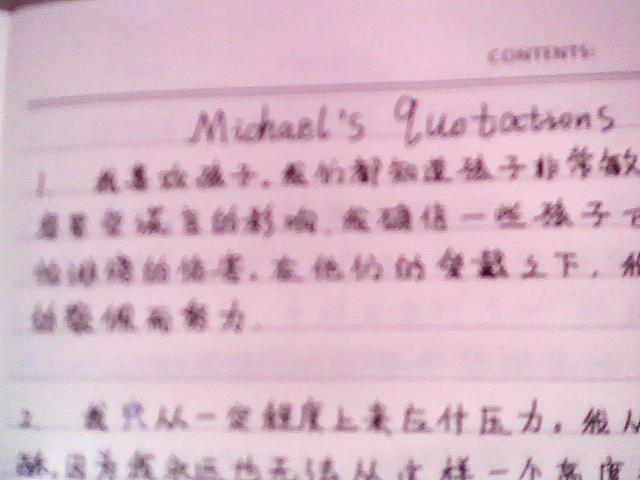 CONTENTS:
Michael's Quotations
1. 我喜欢孩子,我们都知道孩子非常敏
容易受谎言的影响,我确信一些孩子
的伤害,在他们的爱戴之下,我
的敬佩而努力.
2. 我只从一定程度上来应付压力。我从
因为我永远也无法从这样一个高度